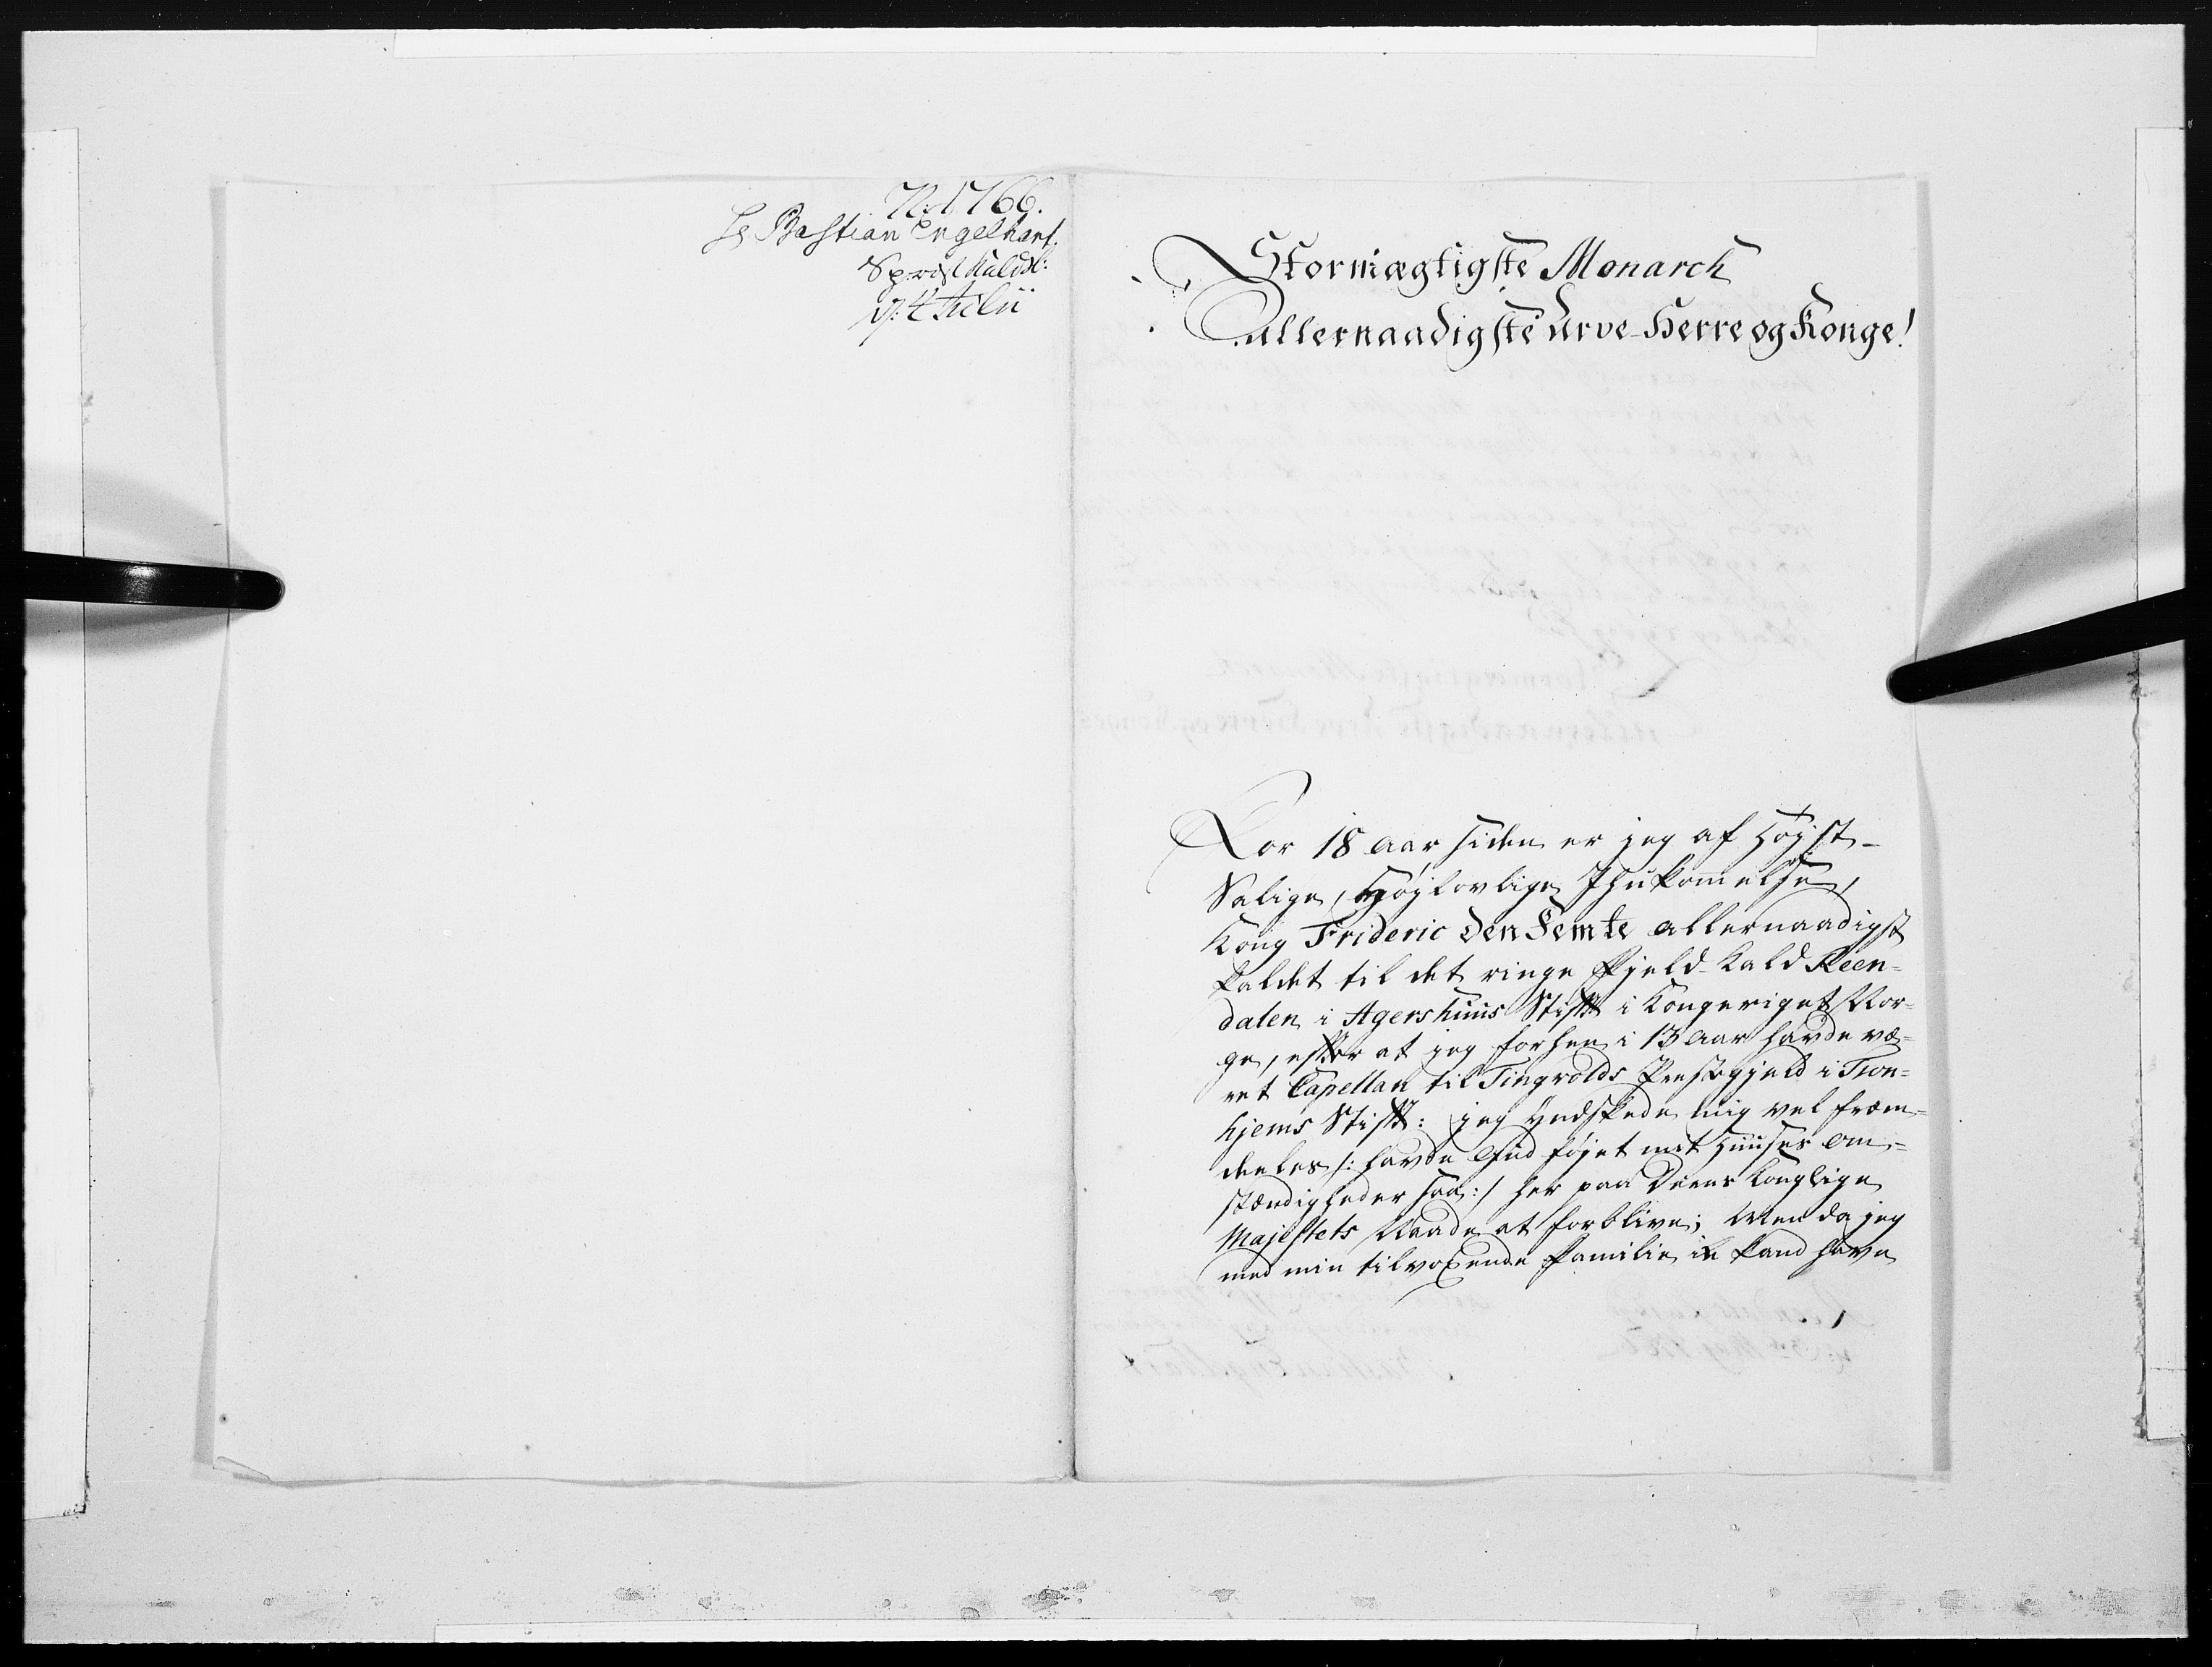 1766.
Hr Bastian Engelhart
d: 4 Julii
Stormægtigste Monarch
Allernaadigste Arve-Herre og Konge!
For 18 Aar siden er jeg af Højst-
Salige, Højlovlige Ihukommelse,
Kong Frideric den Femte allernaadigst
kaldet til det ringe Fjeld-Kald Reen-
dalen i Agershuus Stift i Kongeriget Nor-
ge, efter at jeg forhen i 13 Aar havde væ-
ret Capellan til Tingvolds Præstegjeld i Tron-
hjems Stift: jeg ynskede mig vel frem-
deeles /: havde Gud føjet mit Huuses Om-
stændigheder saa :/ her paa Deres Konglige
Majestets Naade at forblive; Men da jeg
med min tilvoxende Familie ik kand have